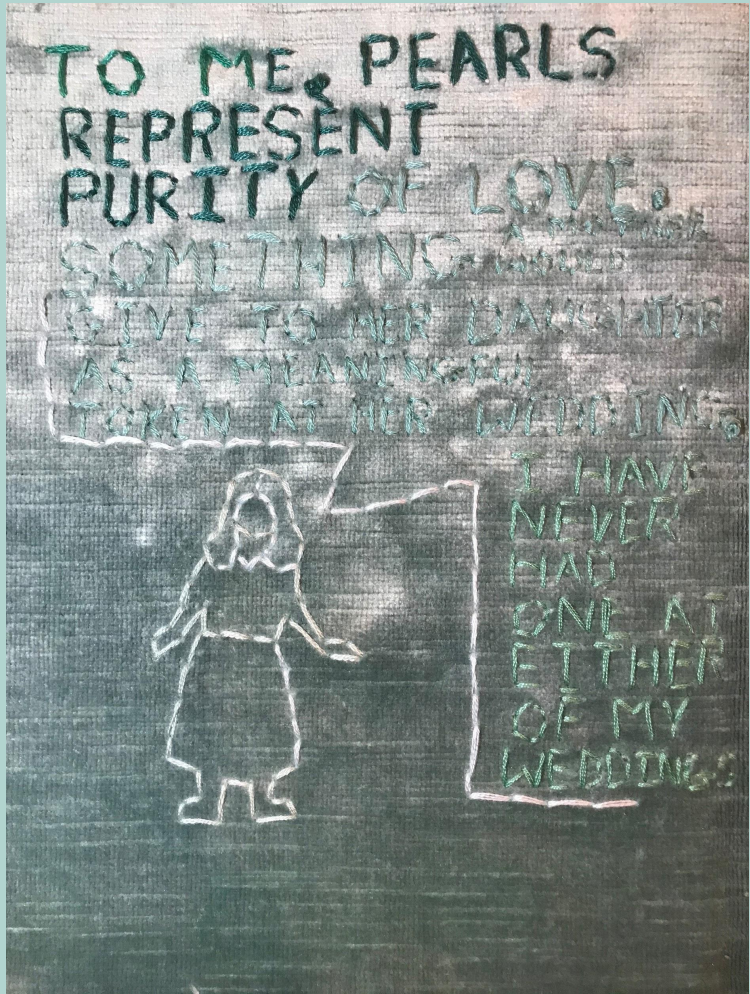 TO ME, PEARLS
REPRESENT
PURITY OF LOVE.
SOMETHING A MOTHER
WOULD
GIVE TO HER DAUGHTER
AS A MEANINGFUL
TOKEN AT HER WEDDING.
I HAVE
NEVER
HAD
ONE AT
EITHER
OF MY
WEDDINGS